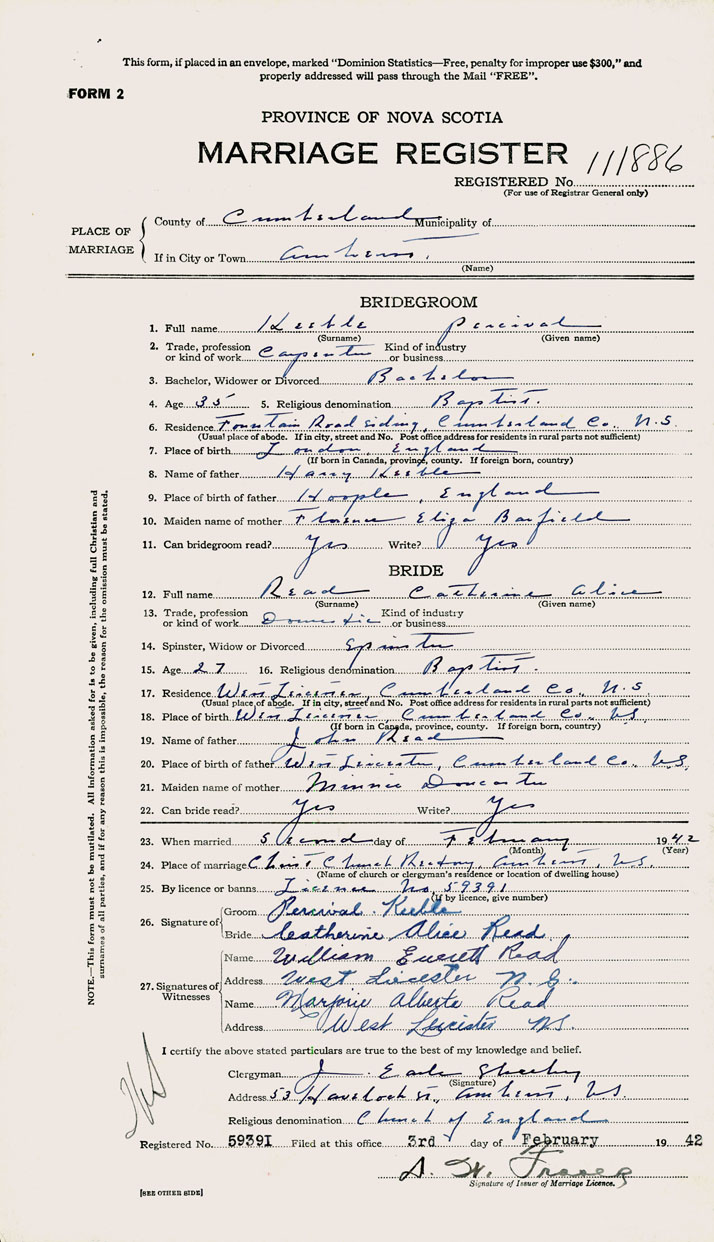 This form, if placed in an envelope, marked "Dominion Statistics—Free, penalty for improper use $300," and
properly addressed will pass through the Mail "FREE".
FORM 2
PROVINCE OF NOVA SCOTIA
MARRIAGE REGISTER 111886
REGISTERED No.
(For use of Registrar General only)
PLACE OF MARRIAGE
County of Cumberland Municipality of
If in City or Town Amherst.
(Name)
BRIDEGROOM
1. Full name Keeble Percival
(Surname) (Given name)
2. Trade, profession or kind of work Carpenter Kind of industry or business
3. Bachelor, Widower or Divorced Bachelor
4. Age 35 5. Religious denomination Baptist.
6. Residence Fountain Road Siding, Cumberland Co., N.S.
(Usual place of abode. If in city, street and No. Post office address for residents in rural parts not sufficient)
7. Place of birth London, England
(If born in Canada, province, county. If foreign born, country)
8. Name of father Harry Keeble
9. Place of birth of father Hoople, England
10. Maiden name of mother Florence Eliza Barfield
11. Can bridegroom read? Yes Write? Yes
BRIDE
12. Full name Read Catherine Alice
(Surname) (Given name)
13. Trade, profession or kind of work Domestic Kind of industry or business
14. Spinster, Widow or Divorced Spinster
15. Age 27 16. Religious denomination Baptist.
17. Residence West Leicester, Cumberland Co., N.S.
(Usual place of abode. If in city, street and No. Post office address for residents in rural parts not sufficient)
18. Place of birth West Leicester, Cumberland Co., N.S.
(If born in Canada, province, county. If foreign born, country)
19. Name of father John Read
20. Place of birth of father West Leicester, Cumberland Co., N.S.
21. Maiden name of mother Minnie Doncaster
22. Can bride read? Yes Write? Yes
23. When married Second day of February 1942
(Month) (Year)
24. Place of marriage Christ Church Rectory, Amherst, N.S.
(Name of church or clergyman's residence or location of dwelling house)
25. By licence or banns Licence No. 59391
(If by licence, give number)
26. Signature of
Groom Percival Keeble
Bride Catherine Alice Read.
27. Signatures of Witnesses
Name William Everett Read
Address West Leicester N.S.
Name Marjorie Alberta Read
Address West Leicister N.S.
I certify the above stated particulars are true to the best of my knowledge and belief.
Clergyman J. Earle
(Signature)
Address 53 Havelock St., Amherst, N.S.
Religious denomination Church of England
Registered No. 59391 Filed at this office 3rd day of February 19 42
Signature of Issuer of Marriage Licence.
[SEE OTHER SIDE]
NOTE.—This form must not be mutilated. All information asked for is to be given, including full Christian and
surnames of all parties, and if for any reason this is impossible, the reason for the omission must be stated.